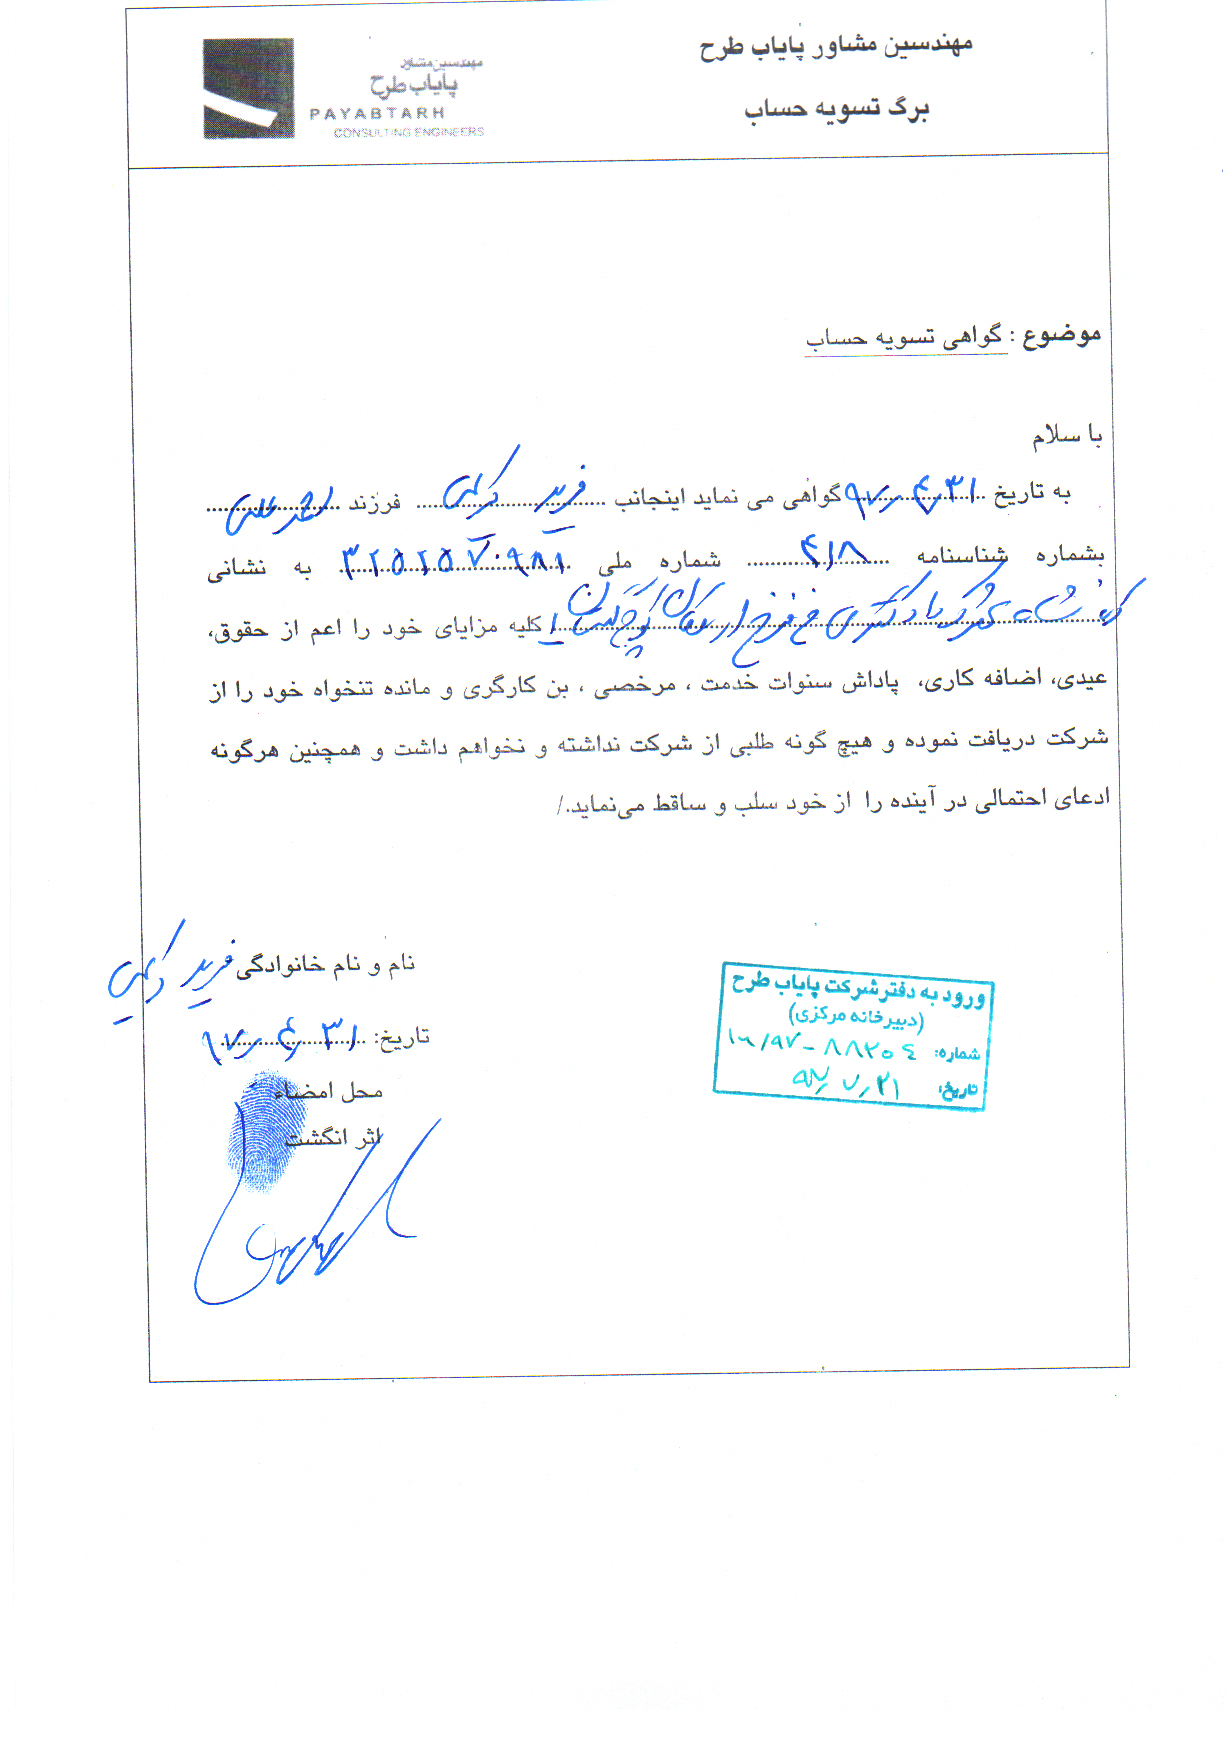 مهندسین مشاور پایاب طرح
برگ تسویه حساب
مهندسین مشاور
پایاب طرح
PAYABTARH
CONSULTING ENGINEERS
موضوع : گواهی تسویه حساب
با سلام
به تاریخ ۹۷٫۴٫۳۱ گواهی می نماید اینجانب فرید کرمی فرزند
بشماره شناسنامه ۴۱۸ شماره ملی ۳۲۵۲۵۷۰۹۸۱ به نشانی
کلیه مزایای خود را اعم از حقوق،
عیدی، اضافه کاری، پاداش سنوات خدمت ، مرخصی ، بن کارگری و مانده تنخواه خود را از
شرکت دریافت نموده و هیچ گونه طلبی از شرکت نداشته و نخواهم داشت و همچنین هرگونه
ادعای احتمالی در آینده را از خود سلب و ساقط می‌نماید./
نام و نام خانوادگی فرید کرمی
تاریخ: ۹۷٫۴٫۳۱
محل امضاء
اثر انگشت
ورود به دفتر شرکت پایاب طرح
(دبیرخانه مرکزی)
شماره: ۱۰/۹۷-۸۸۲۰۴
تاریخ: ۹۷٫۷٫۲۱